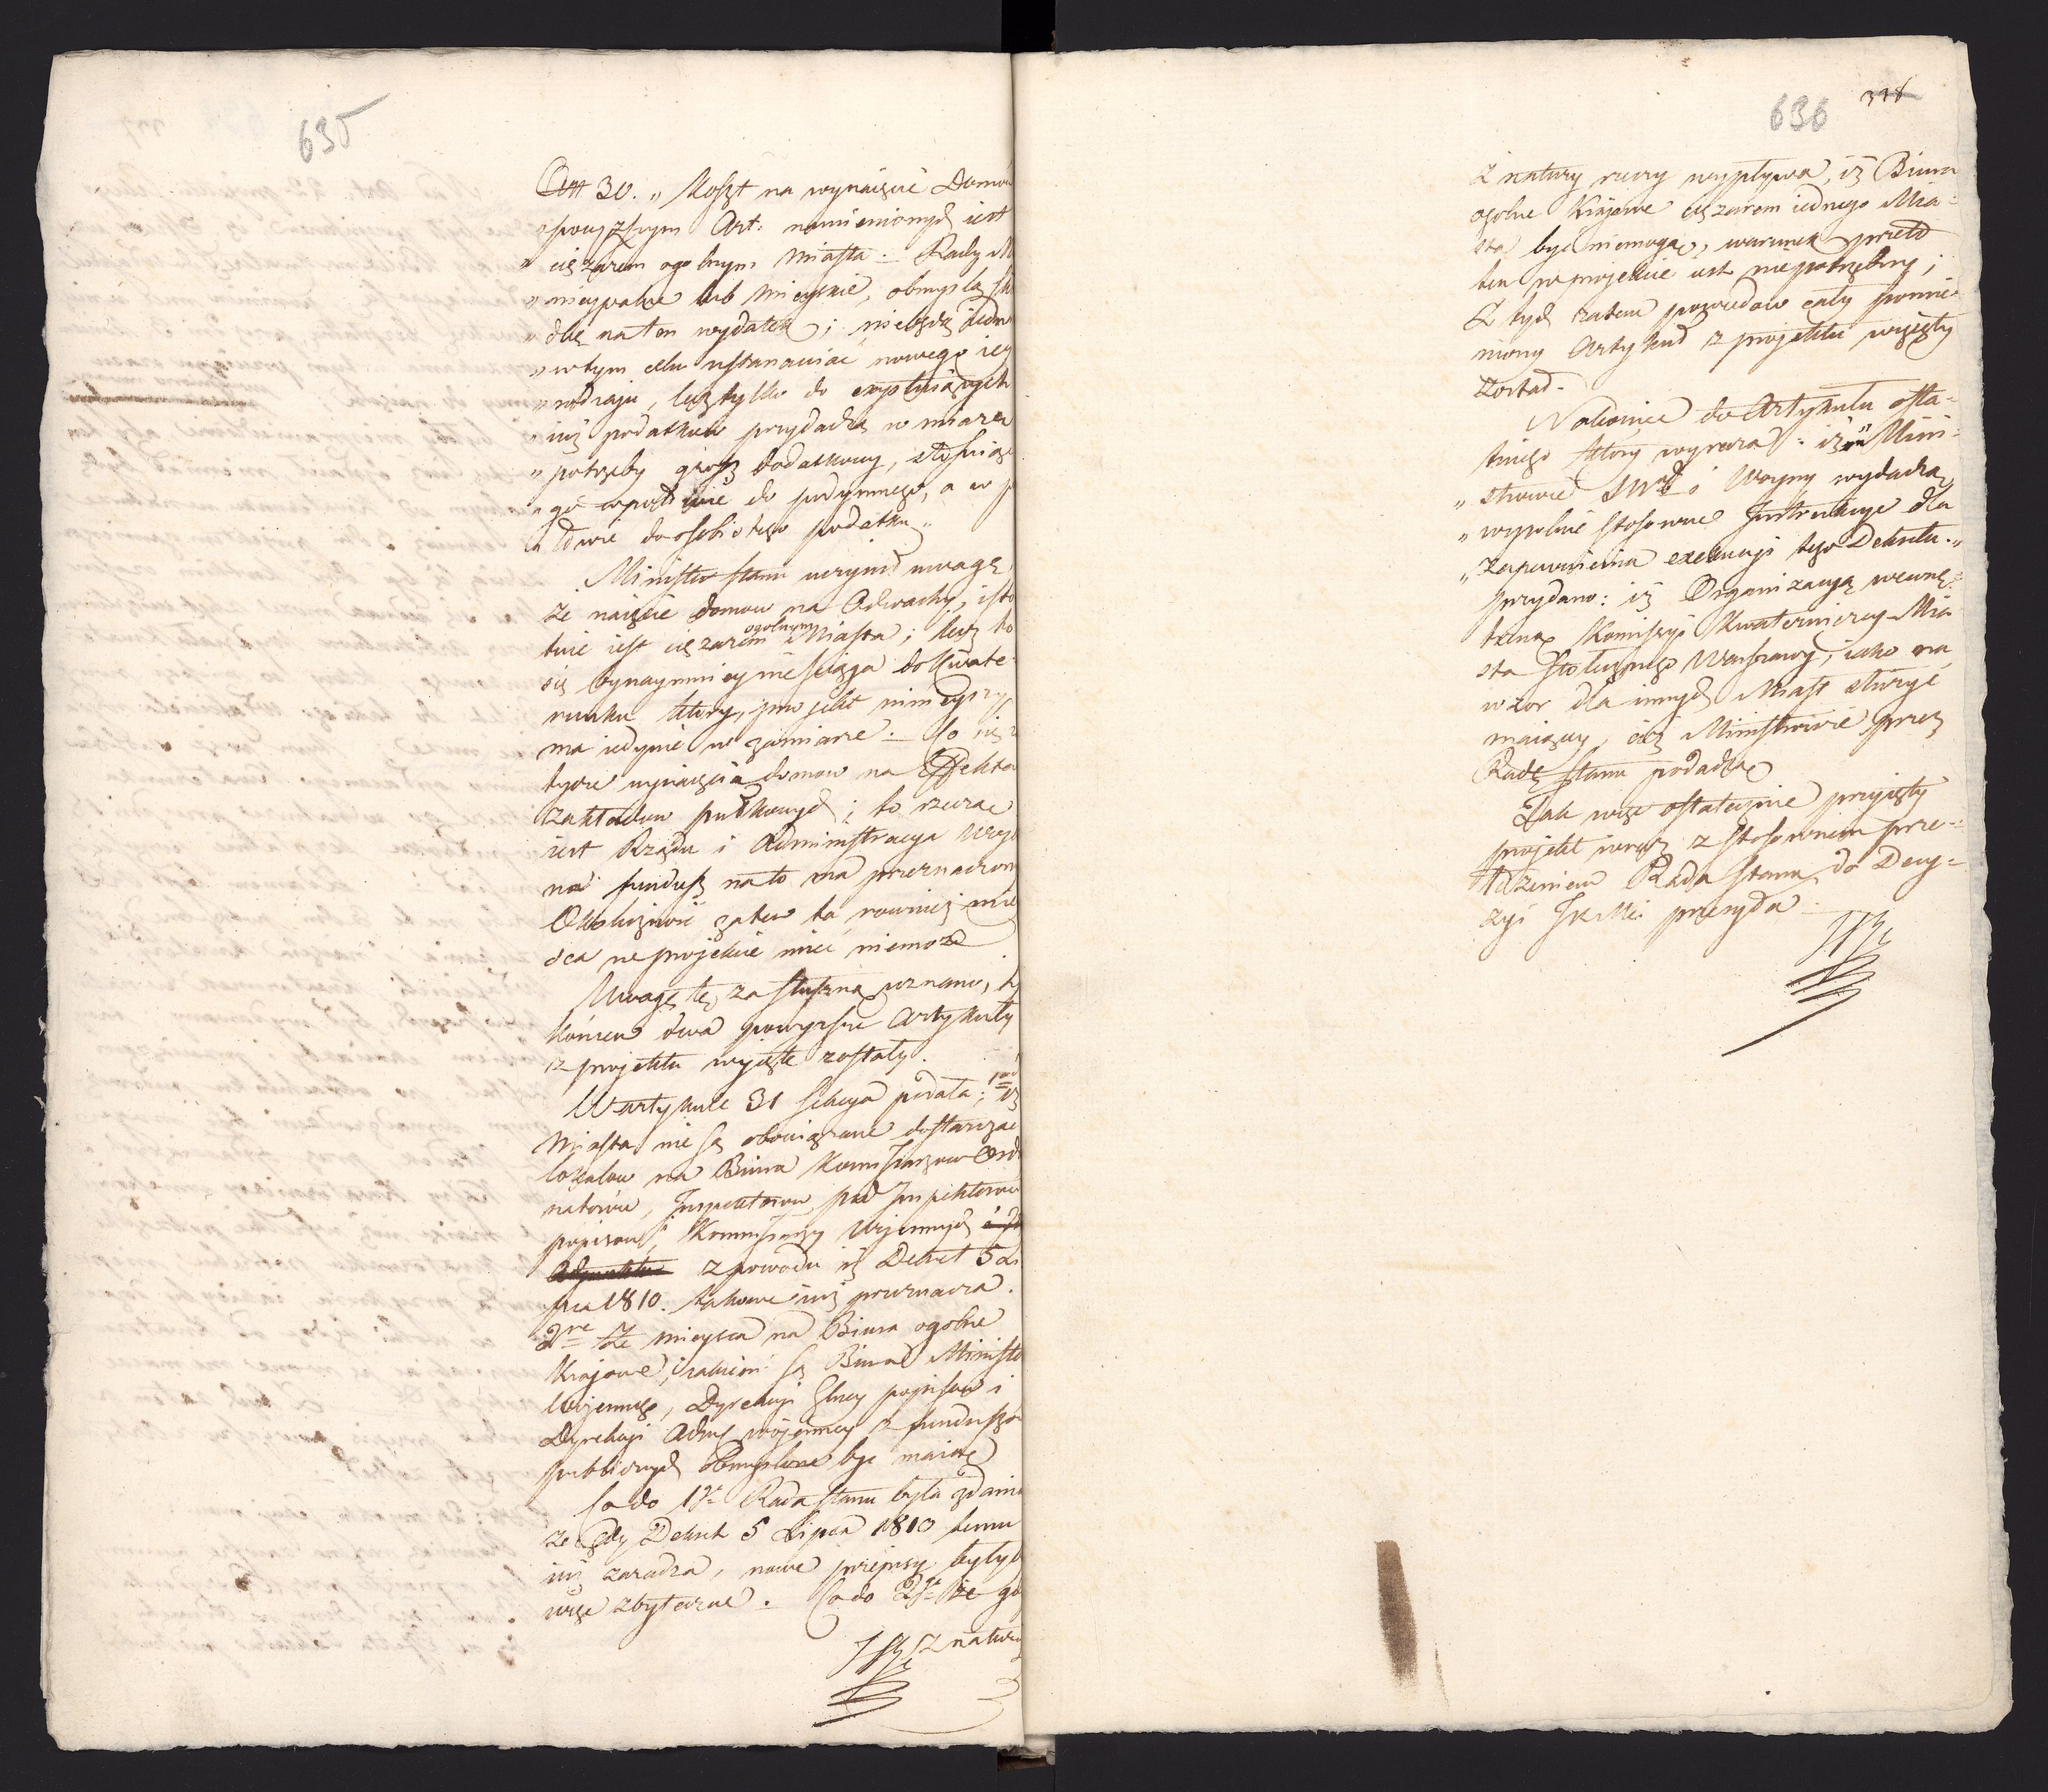 635
Art 30. „ Koszt na wynaięcie Domów
„ powyższym Art: namienionych iest
„ ciężarem ogolnym Miasta. Rady M
„ nicypalne lub Mieyskie, obmyślą
„ na ten wydatek; nie będą
„ w tym celu ustanawiać nowego
„ rodzaju, lecz tylko do exystuiących
„ iuż podatkow przydadzą w miarę
„ potrzeby grosz dodatkowy, stosuiąc
„ go w połowie do podymnego, a w p
„ łowie do osobistego podatku „
Minister Stanu uczynił uwagę,
że naięcie domow na Odwachy, isto
tnie iest ciężarem ogolnym Miasta; lecz to
się bynaymniey nie ściąga do Kwate-
runku który, projekt ninieyszy
ma iedynie w zamiarze. Co się
tycze wynaięcia domow na Effekta
zakładow pułkowych; to rzeczą
iest Rządu i Administracya Woyen
na fundusz na to ma przeznaczony
Okoliczność zatem ta, rownież miey
sca w projekcie mieć niemoże
Uwagę tę za słuszną uznano, i
końcem dwa powyższe Artykuły
z projektu wyięte zostały.
W artykule 31 Sekcya podała; 1od iż
Miasta nie są obowiązane dostarczać
lokalow na Biura Kommissarzow Ordy
natorów, Inspektorow, pod Inspektorow
popisow, Kommissarzy Woiennych
Adjunktow z powodu iż Dekret 5 Li
pca 1810. takowe iuż przeznacza.
2re Że mieysca na Biura ogolne
Krajowe, iakiemi są Biura Ministra
Woiennego, Dyrekcyi Glney popisow i
Dyrekcyi Adm: woienney z funduszow
publicznych obmyślone być maią
Co do 1go Rada Stanu była zdania
że gdy Dekret 5 Lipca 1810 temu
iuż zaradza, nowe przepisy byłyby
więc zbyteczne. Co do 2go że gdy
z natury
636
318
Z natury rzeczy wypływa, iż Biura
ogolne Krajowe ciężarem iednego Mia-
sta być niemogą, warunek przeto
ten w projekcie iest niepotrzebny;
Z tych zatem powodow cały pomie-
niony Artykuł z projektu wyięty
został.
Nakoniec do Artykułu osta-
tniego ktory wyraża: iż „ Mini-
„ strowie SWch i Woyny wydadzą
„ wspolnie stosowne Instrukcye dla
„ zapewnienia exekucyi tego Dekretu. „
przydano: iż Organizacyą wewnę-
trzną Komissyi Kwaterniczey Mia
sta Stołecznego Warszawy, iako na
wzor dla innych Miast służyć
maiącey, ciż Ministrowie przez
Radę Stanu podadzą
Tak więc ostatecznie przyięty
projekt wraz z stosownem prze-
łożeniem Rada Stanu do Decy-
zyi JKMci przesyła